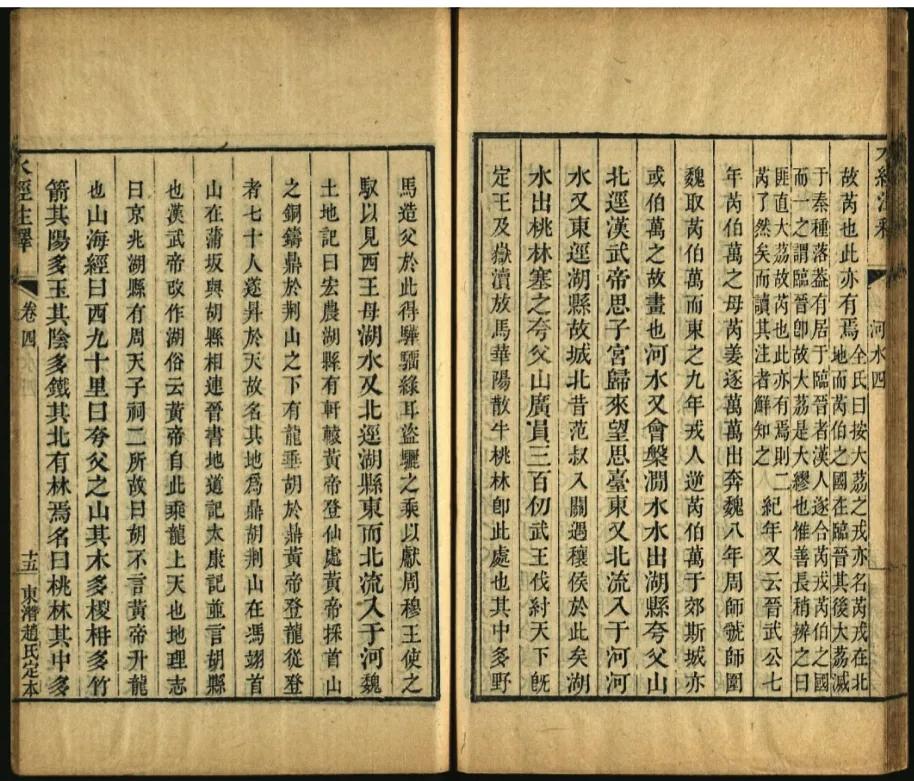 水經注釋 河水四
故芮也此亦有焉
全氏曰按大荔之戎亦名芮戎在北
地而芮伯之國在臨晉其後大荔滅
于秦種落蓋有居于臨晉者漢人遂合芮戎芮伯之國
而一之謂臨晉卽故大荔是大繆也惟善長稍辨之曰
匪直大荔故芮也此亦有焉則二
芮了然矣而讀其注者鮮知之
紀年又云晉武公七
年芮伯萬之母芮姜逐萬萬出奔魏八年周師虢師圍
魏取芮伯萬而東之九年戎人逆芮伯萬于郊斯城亦
或伯萬之故畫也河水又會槃澗水水出湖縣夸父山
北逕漢武帝思子宮歸來望思臺東又北流入于河河
水又東逕湖縣故城北昔范叔入關遇穰侯於此矣湖
水出桃林塞之夸父山廣員三百仞武王伐紂天下旣
定王及嶽瀆放馬華陽散牛桃林卽此處也其中多野
馬造父於此得驊騮綠耳盜驪之乘以獻周穆王使之
馭以見西王母湖水又北逕湖縣東而北流入于河魏
土地記曰宏農湖縣有軒轅黃帝登仙處黃帝採首山
之銅鑄鼎於荆山之下有龍垂胡於鼎黃帝登龍從登
者七十人遂昇於天故名其地爲鼎胡荆山在馮翊首
山在蒲坂與胡縣相連晉書地道記太康記並言胡縣
也漢武帝改作湖俗云黃帝自此乘龍上天也地理志
曰京兆湖縣有周天子祠二所故曰胡不言黃帝升龍
也山海經曰西九十里曰夸父之山其木多椶枏多竹
箭其陽多玉其陰多鐵其北有林焉名曰桃林其中多
水經注釋 卷四 十五 東潛趙氏定本